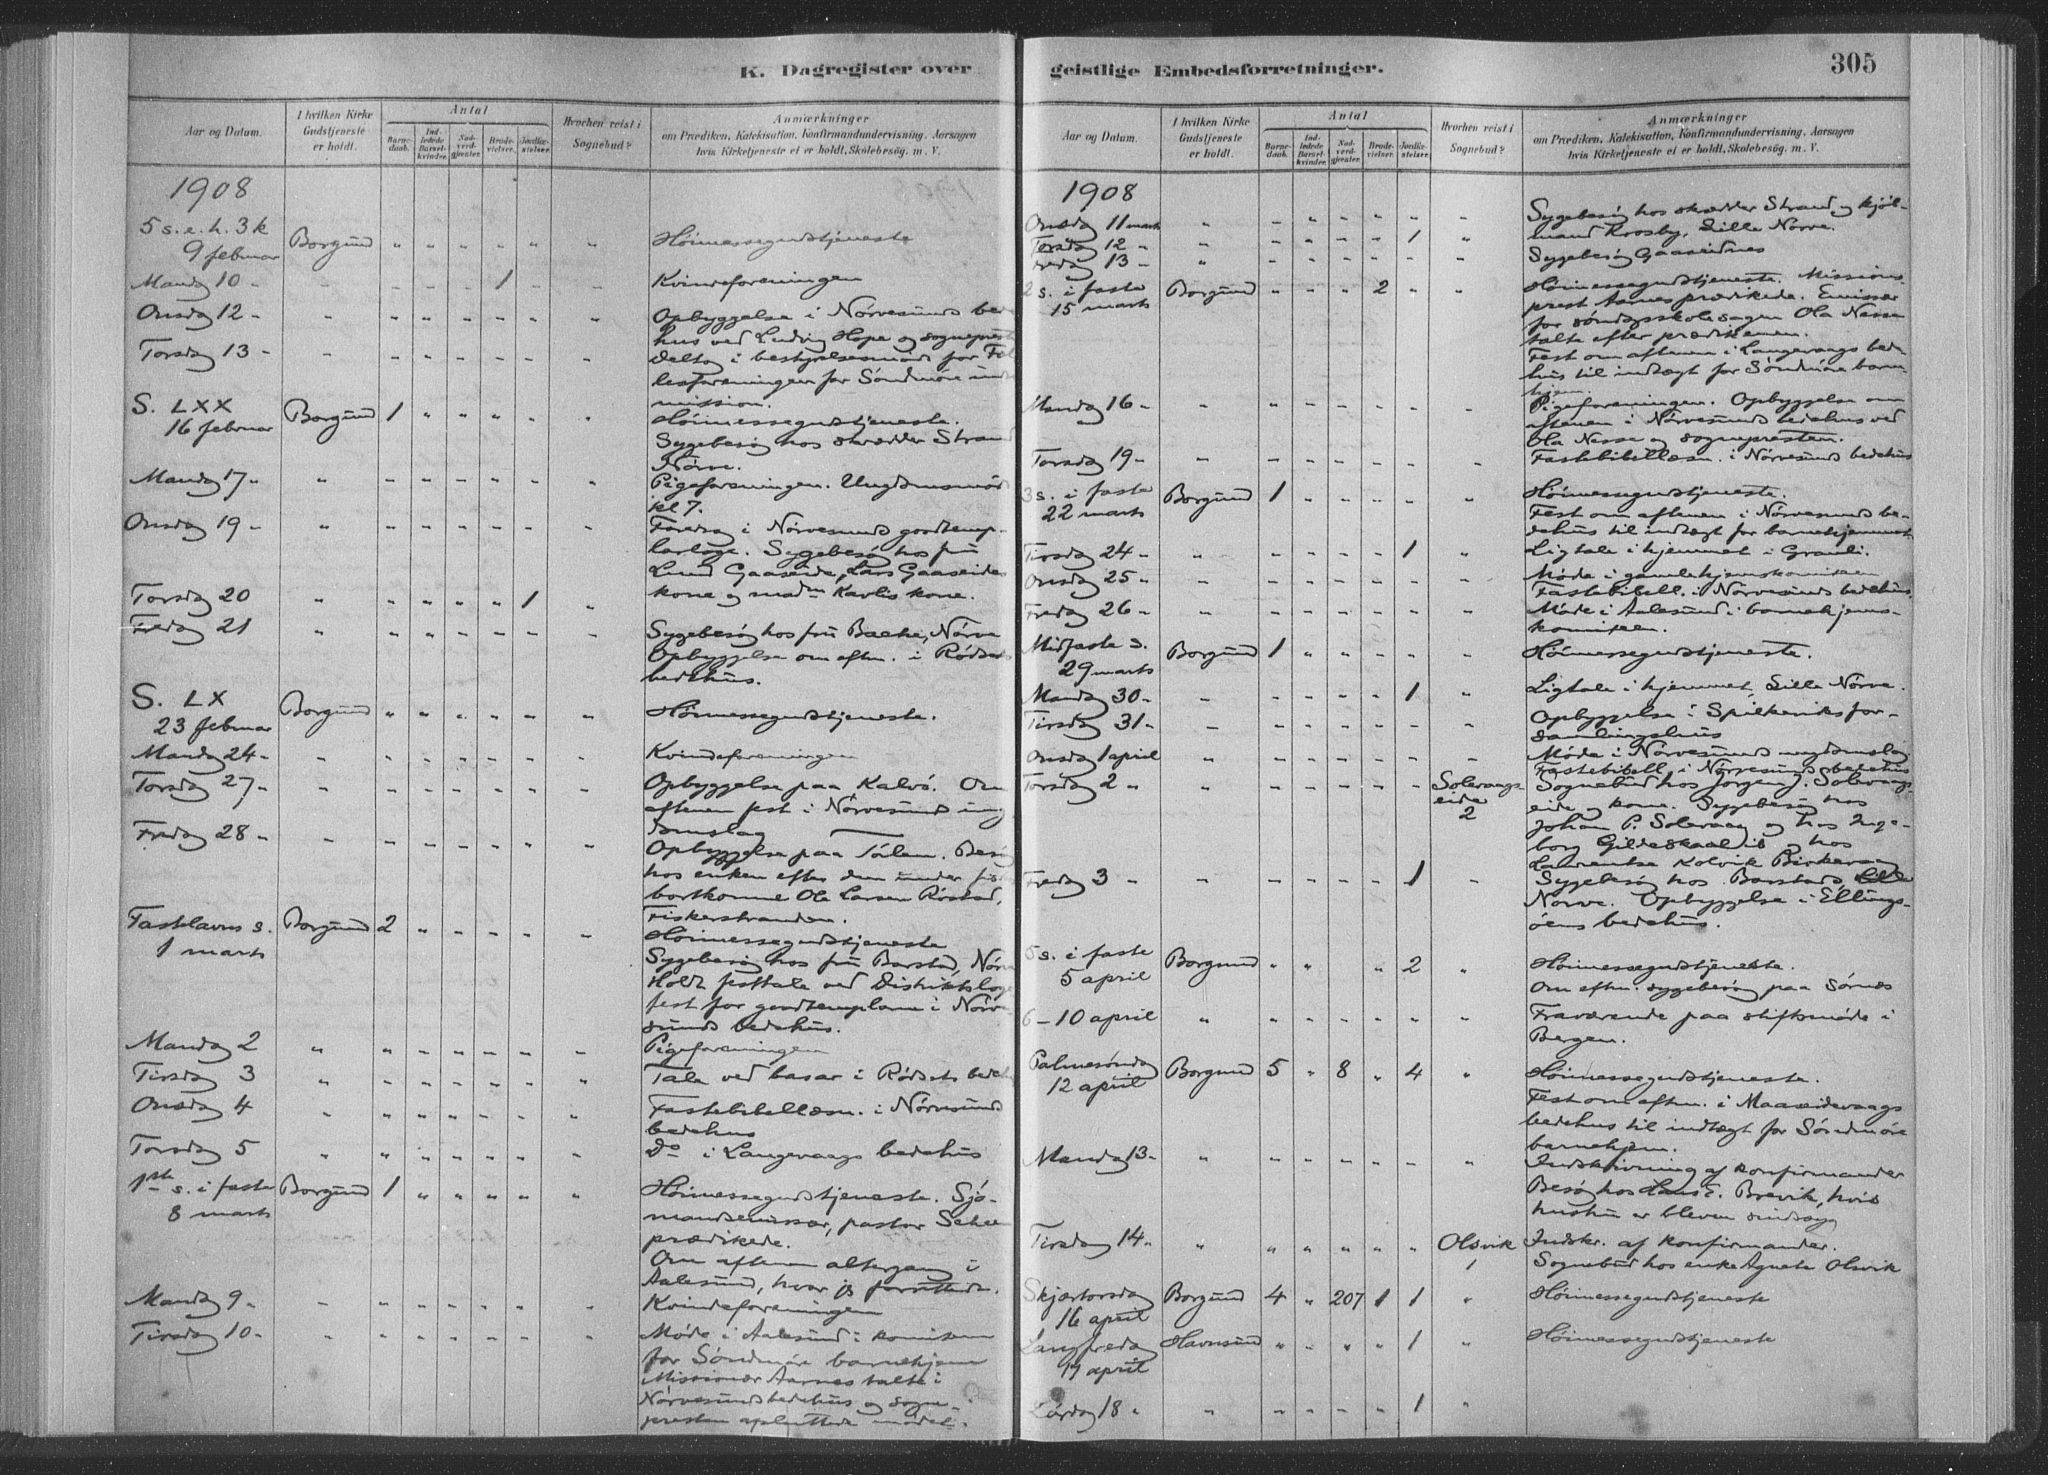 K. Dagregister over
geistlige Embedsforretninger.
305
Aar og Datum.
I hvilken Kirke Gudstjeneste er holdt.
Antal
Barnedaab.
Indledede Barselkvinder.
Nadverdgjæster.
Brudevielser.
Jordfæstelser.
Hvorhen reist i Sognebud?
Anmærkninger
om Prædiken, Katekisation, Konfirmandundervisning, Aarsagen
hvis Kirketjeneste ei er holdt, Skolebesøg. m. V.
1908
5 s. e. h. 3 k
9 februar Borgund " " " " " " Höimessegudstjeneste
Mandag 10 " " " " 1 " " Kvindeforeningen
Onsdag 12 " Opbyggelse i Nörvesunds bede
hus ved Ludvig Hope og sogneprest
Torsdag 13 " Deltog i bestyrelsesmöde for Fæl
lesforeningen for Söndmöre indre
mission.
S. LXX
16 februar Borgund 1 " " " " " Höimessegudstjeneste.
Sygebesög hos skrædder Strand
Nörve.
Mandag 17 " Pigeforeningen. Ungdomsmöde
kl 7.
Onsdag 19 " Foredrag i Nörvesunds godtemp-
larloge. Sygebesög hos fru
Lund Gaaseide, Lars Gaaseides
kone og madm Kavlis kone.
Torsdag 20 " " " " " 1 "
Fredag 21 " Sygebesög hos fru Backe, Nörve
Opbyggelse om eftm. i Rödsets
bedehus.
S. LX
23 februar Borgund " " " " " " Höimessegudstjeneste.
Mandag 24 " Kvindeforeningen
Torsdag 27 " Opbyggelse paa Kalvö. Om
aftenen fest i Nörvesunds ung
domslag
Fredag 28 " Opbyggelse paa Tölem. Besög
hos enken efter den under fis
bortkomne Ola Larsen Röstad,
Fiskerstranden.
Fastelavns s.
1 marts Borgund 2 " " " " " Höimessegudstjeneste
Sygebesög hos fru Barstad, Nörve
Holdt festtale ved Distriktsloge
fest for godtemplarne i Nörve
sunds bedehus.
Mandag 2 " Pigeforeningen
Tirsdag 3 " Tale ved basar i Rödsets bedehus
Onsdag 4 " Fastebibellæsn. i Nörvesunds
bedehus
Torsdag 5 " Do i Langevaags bedehus
1ste s. i faste
8 marts Borgund 1 " " " " " Höimessegudstjeneste. Sjö-
mandsemissær, pastor
prædikede.
Om aftenen altergang i
Aalesund, hvor jeg forrettede.
Mandag 9 " Kvindeforeningen
Tirsdag 10 " Möde i Aalesund i komiteen
for Söndmöre barnehjem
Missionær Aarnes talte i
Nörvesunds bedehus og sogne-
presten afsluttede mödet.
Aar og Datum.
I hvilken Kirke Gudstjeneste er holdt.
Antal
Barnedaab.
Indledede Barselkvinder.
Nadverdgjæster.
Brudevielser.
Jordfæstelser.
Hvorhen reist i Sognebud?
Anmærkninger
om Prædiken, Katekisation, Konfirmandundervisning, Aarsagen
hvis Kirketjeneste ei er holdt, Skolebesøg. m. V.
1908
Onsdag 11 marts " Sygebesög hos skrædder Strand og kjöb-
mand Krosby, Lille Nörve.
Torsdag 12 " " " " " 1 " Sygebesög Gaaseidnes
Fredag 13 "
2 s. i faste
15 marts Borgund " " " 2 " " Höimessegudstjeneste. Missions
prest Aarnes prædikede. Emissær
for söndagsskolesagen Ola Nesse
talte efter prædikenen.
Fest om aftenen i Langevaags bede-
hus til indtægt for Söndmöre barne
hjem.
Mandag 16 " Pigeforeningen. Opbyggelse om
aftenen i Nörvesunds bedehus ved
Ola Nesse og sognepresten.
Torsdag 19 " Fastebibellæsn. i Nörvesunds bedehus
3 s. i faste
22 marts Borgund 1 " " " " " Höimessegudstjeneste.
Fest om aftenen i Nörvesunds be-
dehus til indtægt for barnehjemmet.
Tirsdag 24 " " " " " 1 " Ligtale i hjemmet i Grauli.
Onsdag 25 " Möde i gamlehjemskomiteen
Fastebibell. i Nörvesunds bedehus.
Fredag 26 " Möde i Aalesund i barnehjems-
komiteen.
Midfaste s.
29 marts Borgund 1 " " " " " Höimessegudstjeneste.
Mandag 30 " " " " " 1 " Ligtale i hjemmet, Lille Nörve.
Tirsdag 31 " Opbyggelse i Spilkeviks for-
samlingshus
Onsdag 1 april " Möde i Nörvesunds ungdomslag
Fastebibell. i Nörvesunds bedehus
Torsdag 2 " Solevaags-
eide
2 Sognebud hos Jörgen J. Solevaags-
eide og kone. Sygebesög hos
Johan P. Solevaag og hos Inge-
borg Gildeskaal is og hos
Laurentse Kolvik Birkevaag
Fredag 3 " " " " " 1 " Sygebesög hos Barstads
Nörve. Opbyggelse i Ellings-
öens bedehus.
5 s. i faste
5 april Borgund " " " 2 " Höimessegudstjeneste.
Om eftm. sygebesög paa Sörnes
6 - 10 april " Fraværende paa stiftsmöde i
Bergen.
Palmesöndag
12 april Borgund 5 " 8 " 4 " Höimessegudstjeneste.
Fest om eftm. i Maaseidevaags
bedehus til indtægt for Söndmöre
barnehjem.
Mandag 13 " Indskrivning af konfirmander
Besög hos Lars E. Brevik, hvis
hustru er bleven sindssyg
Tirsdag 14 " Olsvik
1 Indskr. af konfirmander.
Sognebud hos enke Agnete Olsvik
Skjærtorsdag
16 april Borgund 4 " 207 1 1 " Höimessegudstjeneste
Langfredag
17 april Havnsund " " " " 1 " Höimessegudstjeneste
Lördag 18 " " " " " 1 "